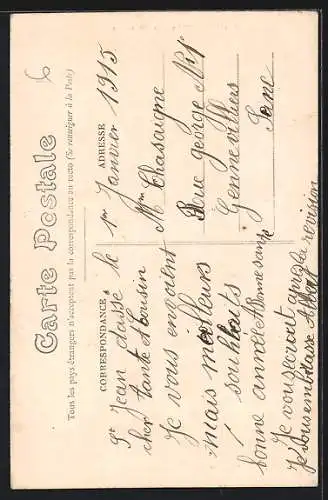 Carte Postale
Tous les pays étrangers n'acceptent pas la correspondance au recto (Se renseigner à la Poste)
CORRESPONDANCE
ADRESSE
St Jean dasse le 1er Janvier 1915
cher tante et Cousin
Je vous envoient
mais meilleurs
souhaits
bonne année et Bonne santé
Je vous ecrit apres la revision
Je vous embrasse
Mme Chasaigne
Rue george N 1
Gennevilliers
Seine